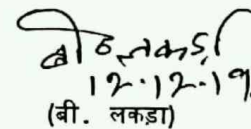 बी० लकड़ा
12.12.19
(बी. लकडा)